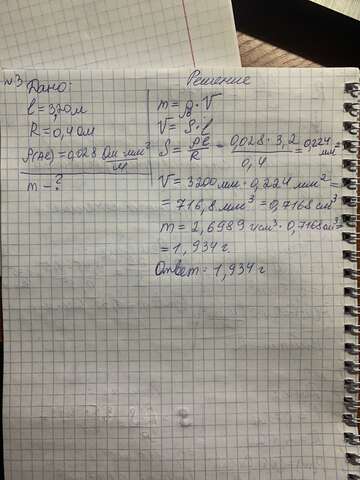 №3 Дано:
l = 3,20м
R = 0,4 Ом
ρ(Al) = 0,028 Ом·мм²/м
m - ?
Решение
m = ρ · V
V = S · l
S = ρl/R = 0,028 · 3,2/0,4 = 0,224 мм²
V = 3200 мм · 0,224 мм² =
= 716,8 мм³ = 0,7168 см³
m = 2,6989 г/см³ · 0,7168 см³ =
= 1,934 г
Ответ: 1,934 г